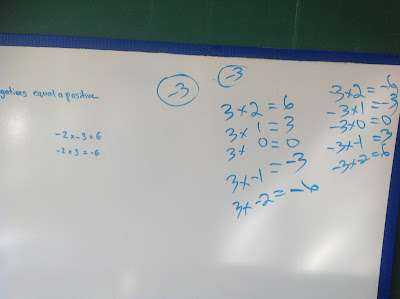 gatives equal a positive
-2 x -3 = 6
-2 x 3 = -6
-3
-3
3 x 2 = 6
3 x 1 = 3
3 x 0 = 0
3 x -1 = -3
3 x -2 = -6
-3 x 2 = -6
-3 x 1 = -3
-3 x 0 = 0
-3 x -1 = 3
-3 x -2 = 6